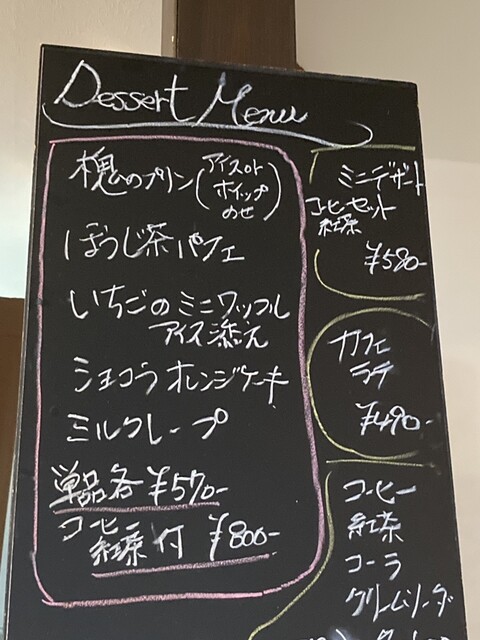 Dessert Menu
槐のプリン(アイスor
ホイップ
のせ)
ほうじ茶パフェ
いちごのミニワッフル
アイス添え
ショコラオレンジケーキ
ミルクレープ
単品各 ¥570-
コーヒー
紅茶 付 ¥800-
ミニデザート
コーヒーセット
紅茶
¥580-
カフェ
ラテ
¥490-
コーヒー
紅茶
コーラ
クリームソーダ